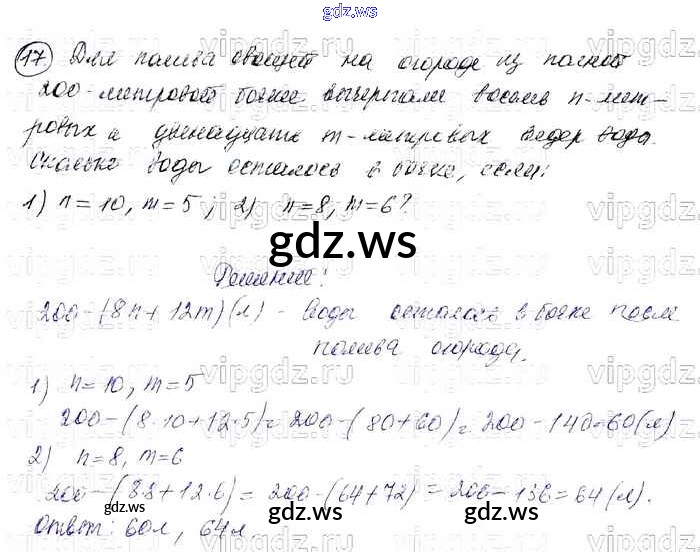 gdz.ws
17. Для полива овощей на огороде из полной
200-литровой бочки вычерпали восемь n-лит-
ровых и двенадцать m-литровых ведер воды.
Сколько воды осталось в бочке, если:
1) n=10, m=5; 2) n=8, m=6?
gdz.ws
Решение:
200-(8n+12m)(л) - воды осталось в бочке после
полива огорода.
1) n=10, m=5
200-(8·10+12·5)=200-(80+60)=200-140=60(л)
2) n=8, m=6
200-(8·8+12·6)=200-(64+72)=200-136=64(л).
Ответ: 60л, 64л
gdz.ws gdz.ws gdz.ws
vipgdz.ru